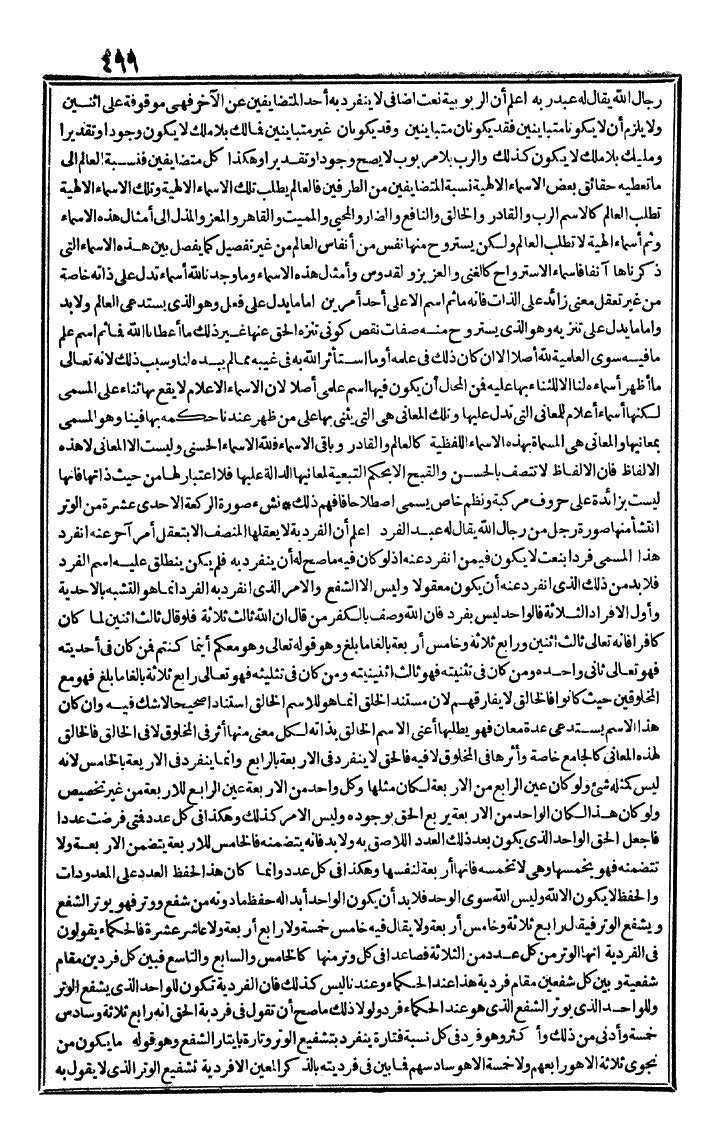 ٤٩٩
رجال الله يقال له عبد ربه اعلم أن الربوبية نعت اضافى لا ينفرد به أحد المتضايفين عن الآخر فهى موقوفة على اثنين
ولا يلزم أن لا يكونا متباينين فقد يكونان متباينين وقد يكونان غير متباينين فمالك بلا ملك لا يكون وجودا وتقديرا
ومليك بلا ملك لا يكون كذلك والرب بلا مربوب لا يصح وجودا وتقديرا وهكذا كل متضايفين فنسبة العالم الى
ما تعطيه حقائق بعض الاسماء الالهية نسبة المتضايفين من الطرفين فالعالم يطلب تلك الاسماء الالهية وتلك الاسماء الالهية
تطلب العالم كالاسم الرب والقادر والخالق والنافع والضار والمحيى والمميت والقاهر والمعز والمذل الى أمثال هذه الاسماء
وثم أسماء الهية لا تطلب العالم ولكن يستروح منها نفس من أنفاس العالم من غير تفصيل كما يفصل بين هذه الاسماء التى
ذكرناها آنفا فاسماء الاسترواح كالغنى والعزيز والقدوس وأمثال هذه الاسماء وما وجدنا لله أسماء تدل على ذاته خاصة
من غير تعقل معنى زائد على الذات فانه ما ثم اسم الا على أحد أمرين اما ما يدل على فعل وهو الذى يستدعى العالم ولا بد
واما ما يدل على تنزيه وهو الذى يستروح منه صفات نقص كونى تنزه الحق عنها غير ذلك ما أعطانا الله فما ثم اسم علم
ما فيه سوى العلمية لله أصلا الا ان كان ذلك فى علمه أو ما استأثر الله به فى غيبه مما لم يبده لنا وسبب ذلك لانه تعالى
ما أظهر أسماءه لنا الا للثناء بها عليه فمن المحال أن يكون فيها اسم علمى أصلا لان الاسماء الاعلام لا يقع بها ثناء على المسمى
لكنها أسماء أعلام للمعانى التى تدل عليها وتلك المعانى هى التى يثنى بها على من ظهر عندنا حكمه بها فينا وهو المسمى
بمعانيها والمعانى هى المسماة بهذه الاسماء اللفظية كالعالم والقادر وباقى الاسماء فلله الاسماء الحسنى وليست الا المعانى لا هذه
الالفاظ فان الالفاظ لا تتصف بالحسن والقبح الا بحكم التبعية لمعانيها الدالة عليها فلا اعتبار لها من حيث ذاتها فانها
ليست بزائدة على حروف مركبة ونظم خاص يسمى اصطلاحا فافهم ذلك * نشء صورة الركعة الاحدى عشرة من الوتر
انتشأ منها صورة رجل من رجال الله يقال له عبد الفرد اعلم أن الفردية لا يعقلها المنصف الا بتعقل أمر آخر عنه انفرد
هذا المسمى فردا بنعت لا يكون فيمن انفرد عنه اذ لو كان فيه ما صح له أن ينفرد به فلم يكن ينطلق عليه اسم الفرد
فلا بد من ذلك الذى انفرد عنه أن يكون معقولا وليس الا الشفع والامر الذى انفرد به الفرد انما هو التشبه بالاحدية
وأول الافراد الثلاثة فالواحد ليس بفرد فان الله وصف بالكفر من قال ان الله ثالث ثلاثة فلو قال ثالث اثنين لما كان
كافرا فانه تعالى ثالث اثنين ورابع ثلاثة وخامس أربعة بالغا ما بلغ وهو قوله تعالى وهو معكم أينما كنتم فمن كان فى أحديته
فهو تعالى ثانى واحده ومن كان فى تثنيته فهو ثالث اثنينيته ومن كان فى تثليثه فهو تعالى رابع ثلاثة بالغا ما بلغ فهو مع
المخلوقين حيث كانوا فالخالق لا يفارقهم لان مستند الخلق انما هو للاسم الخالق استنادا صحيحا لا شك فيه وان كان
هذا الاسم يستدعى عدة معان فهو يطلبها أعنى الاسم الخالق بذاته لكل معنى منها أثر فى المخلوق لا فى الخالق فالخالق
لهذه المعانى كالجامع خاصة وأثرها فى المخلوق لا فيه فالحق لا ينفرد فى الاربعة بالرابع وانما ينفرد فى الاربعة بالخامس لانه
ليس كمثله شئ ولو كان عين الرابع من الاربعة لكان مثلها وكل واحد من الاربعة عين الرابع للاربعة من غير تخصيص
ولو كان هذا لكان الواحد من الاربعة يربع الحق بوجوده وليس الامر كذلك وهكذا فى كل عدد فتى فرضت عددا
فاجعل الحق الواحد الذى يكون بعد ذلك العدد اللاصق به ولا بد فانه يتضمنه فالخامس للاربعة يتضمن الاربعة ولا
تتضمنه فهو يخمسها وهى لا تخمسه فانها أربعة لنفسها وهكذا فى كل عدد وانما كان هذا لحفظ العدد على المعدودات
والحفظ لا يكون الا لله وليس الله سوى الوحد فلا بد أن يكون الواحد أبدا له حفظ ما دونه من شفع ووتر فهو يوتر الشفع
ويشفع الوتر فيقال رابع ثلاثة وخامس أربعة ولا يقال فيه خامس خمسة ولا رابع أربعة ولا عاشر عشرة فالحكماء يقولون
فى الفردية انها الوتر من كل عدد من الثلاثة فصاعدا فى كل وتر منها كالخامس والسابع والتاسع فبين كل فردين مقام
شفعية وبين كل شفعين مقام فردية هذا عند الحكماء وعندنا ليس كذلك فان الفردية تكون للواحد الذى يشفع الوتر
وللواحد الذى يوتر الشفع الذى هو عند الحكماء فرد ولولا ذلك ما صح أن تقول فى فردية الحق انه رابع ثلاثة وسادس
خمسة وأدنى من ذلك وأكثر وهو فرد فى كل نسبة فتارة ينفرد بتشفيع الوتر وتارة بايتار الشفع وهو قوله ما يكون من
نجوى ثلاثة الا هو رابعهم ولا خمسة الا هو سادسهم فما بين فى فرديته بالذكر المعين الا فردية تشفيع الوتر الذى لا يقول به